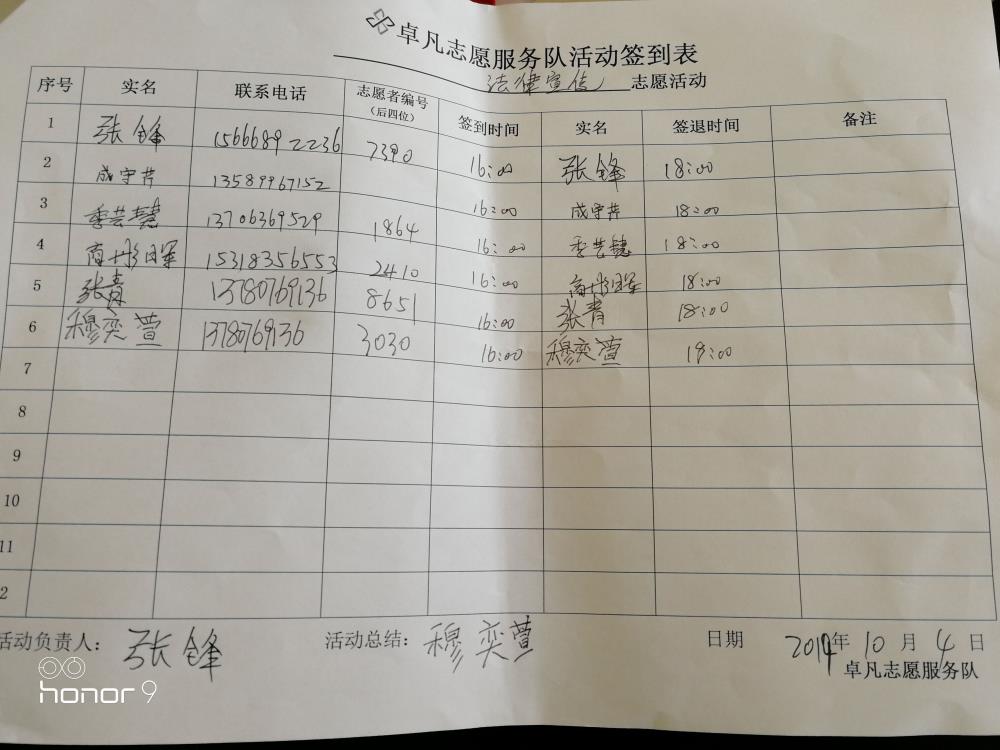 卓凡志愿服务队活动签到表
法律宣传 志愿活动
序号 实名 联系电话 志愿者编号（后四位） 签到时间 实名 签退时间 备注
1 张锋 15666892236 7390 16:00 张锋 18:00
2 成守芹 13589967152 16:00 成守芹 18:00
3 季芸慧 13706369529 1864 16:00 季芸慧 18:00
4 15318356553 2410 16:00 18:00
5 张青 13780769136 8651 16:00 张青 18:00
6 穆奕萱 13780769136 3030 16:00 穆奕萱 18:00
7
8
9
10
11
2
活动负责人：张锋 活动总结：穆奕萱 日期 年 10 月 4 日
卓凡志愿服务队
honor 9